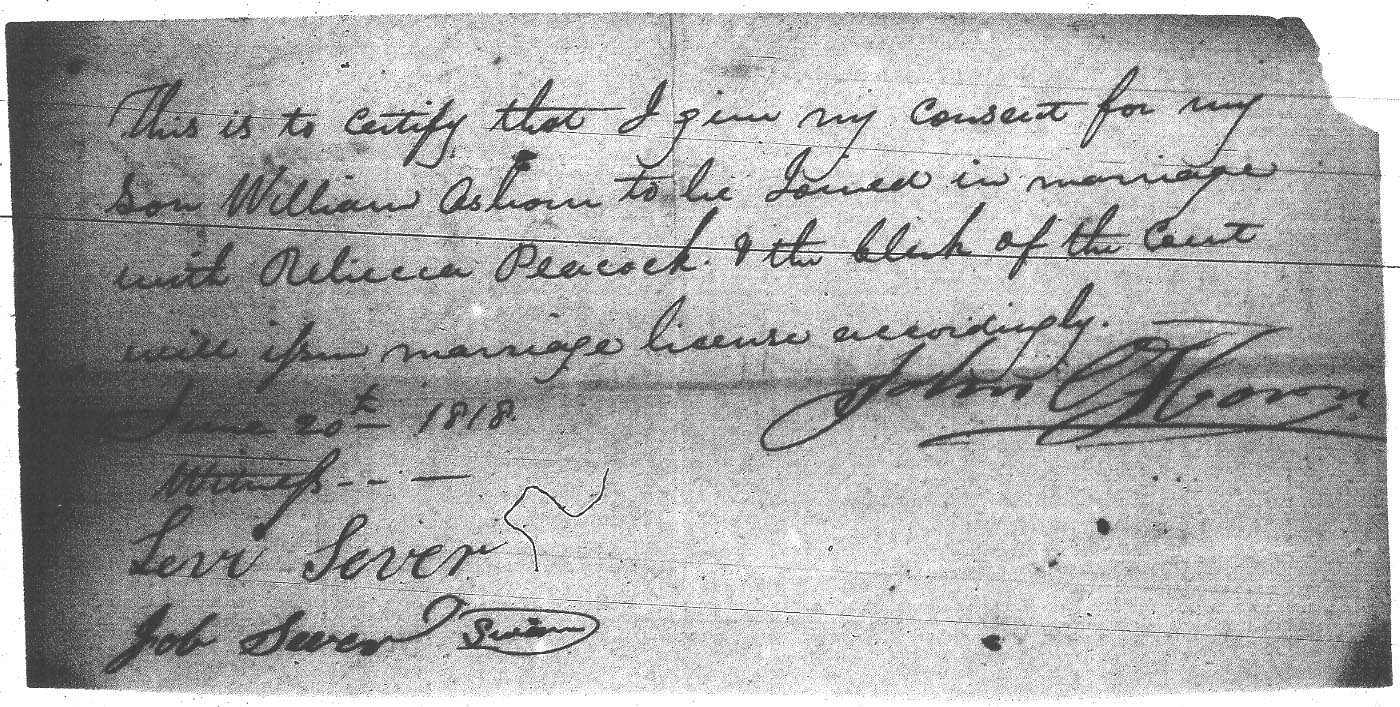 This is to certify that I give my consent for my
Son William Ashorn to be Joined in marriage
with Rebecca Peacock. & the Clerk of the Court
will issue marriage license accordingly.
John
June 20th 1818
Witness -- —
Levi Sever
Job Sever Sworn